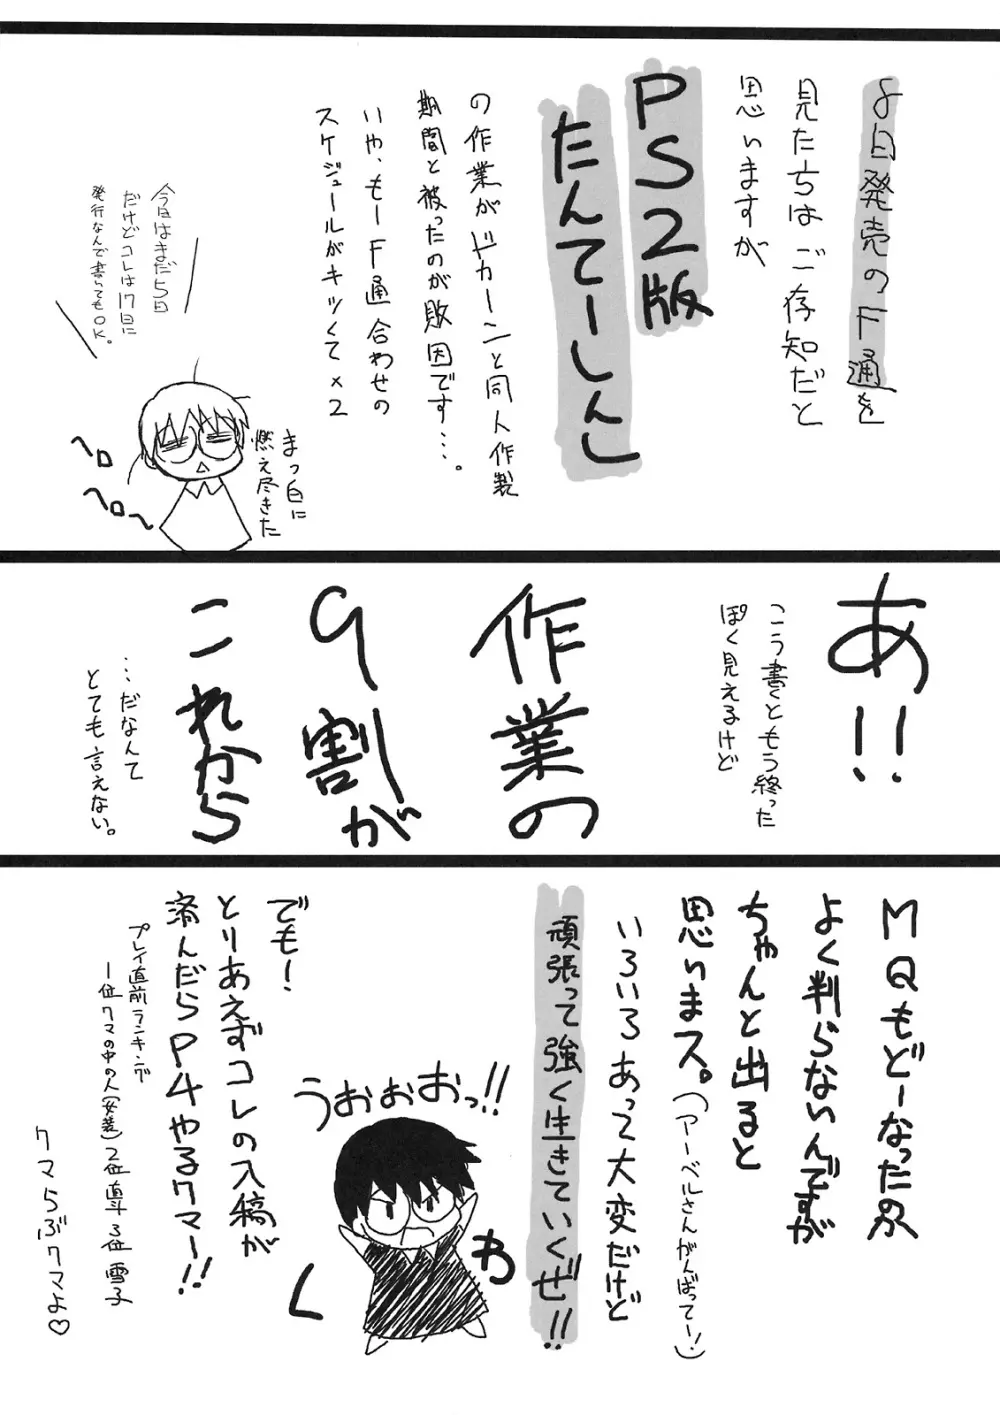 8日発売のF通を
見たちはご存知だと
思いますが
PS2版
たんてーしんし
の作業がドカーンと同人作製
期間と被ったのが敗因です…。
いや、もーF通合わせの
スケジュールがキツくて×2
今日はまだ5日
だけどコレは17日に
発行なんで書いてもOK。
まっ白に
燃え尽きた
ヘロ
ヘロ〜
あ!!
こう書くともう終った
ぽく見えるけど
作業の
9割が
これから
…だなんて
とても言えない。
MQもどーなったのか
よく判らないんですが
ちゃんと出ると
思いまス。(アーベルさんがんばってー!)
いろいろあって大変だけど
頑張って強く生きていくぜ!!
うぉぉおっ!!
わ
く
でも!
とりあえずコレの入稿が
済んだらP4やるクマー!!
プレイ直前ランキング
一位クマの中の人(女装)2位直斗3位雪子
クマらぶクマよ♡